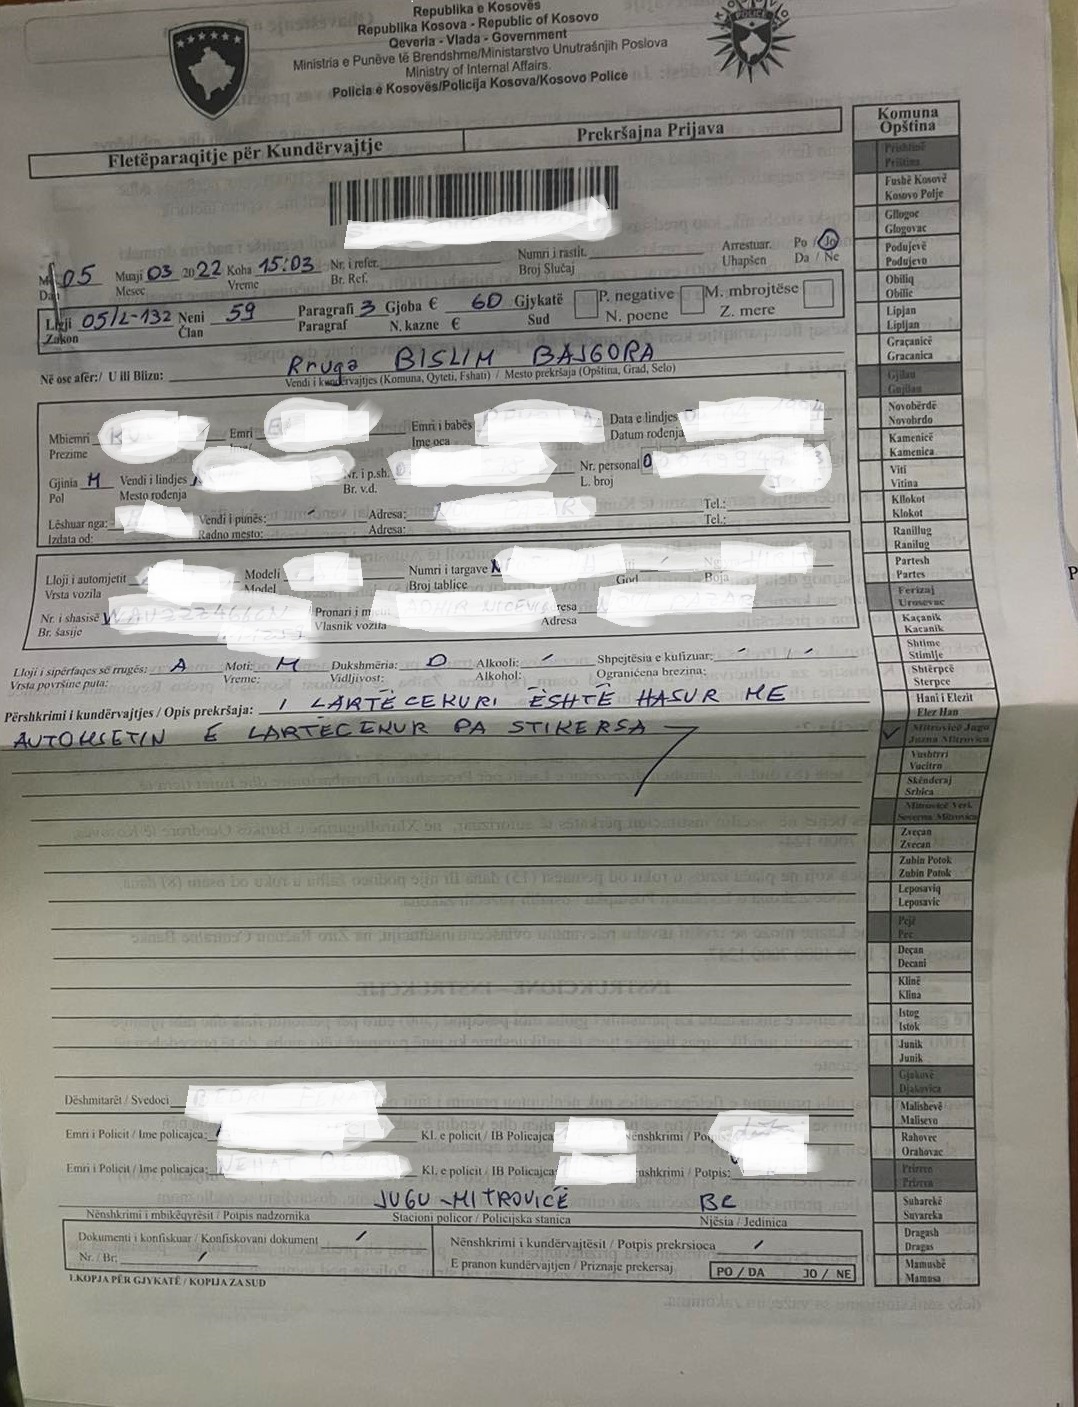 Republika e Kosovës
Republika Kosova - Republic of Kosovo
Qeveria - Vlada - Government
Ministria e Punëve të Brendshme/Ministarstvo Unutrašnjih Poslova
Ministry of Internal Affairs
Policia e Kosovës/Policija Kosova/Kosovo Police
POLICE
Fletëparaqitje për Kundërvajtje Prekršajna Prijava
05 Muaji 03 2022 Koha 15:03 Nr. i refer. Numri i rastit. Arrestuar. Po / Jo
Dan Mesec Vreme Br. Ref. Broj Slučaj Uhapšen Da / Ne
Ligji 05/L-132 Neni 59 Paragrafi 3 Gjoba € 60 Gjykatë P. negative M. mbrojtëse
Zakon Član Paragraf N. kazne € Sud N. poene Z. mere
Në ose afër:/ U ili Blizu: Rruga BISLIM BAJGORA
Vendi i kundërvajtjes (Komuna, Qyteti, Fshati) / Mesto prekšaja (Opština, Grad, Selo)
Mbiemri Emri Emri i babës Data e lindjes
Prezime Ime oca Datum rođenja
Gjinia M Vendi i lindjes Nr. i p.sh. Nr. personal 0
Pol Mesto rođenja Br. v.d. L. broj
Lëshuar nga: Vendi i punës: Adresa: Tel.:
Izdata od: Radno mesto: Adresa: Tel.:
Lloji i automjetit Modeli Numri i targave
Vrsta vozila Model Broj tablice God Boja
Nr. i shasisë Pronari i
Br. šasije Vlasnik vozila Adresa
Lloji i sipërfaqes së rrugës: A Moti: M Dukshmëria: D Alkooli: / Shpejtësia e kufizuar: / / -
Vrsta površine puta: Vreme: Vidljivost: Alkohol: Ograničena brezina:
Përshkrimi i kundërvajtjes / Opis prekršaja: I LARTË CEKURI ËSHTË HASUR ME
AUTOMJETIN E LARTËCEKUR PA STIKERSA
Dëshmitarët / Svedoci
Emri i Policit / Ime policajca: Kl. e policit / IB Policajca Nënshkrimi /
Emri i Policit / Ime policajca: Kl. e policit / IB Policajca / Potpis:
JUGU - MITROVICË BC
Nënshkrimi i mbikëqyrësit / Potpis nadzornika Stacioni policor / Policijska stanica Njësia / Jedinica
Dokumenti i konfiskuar / Konfiskovani dokument / Nënshkrimi i kundërvajtësit / Potpis prekrsioca /
Nr. / Br: / E pranon kundërvajtjen / Priznaje prekersaj PO / DA JO / NE
1.KOPJA PËR GJYKATË / KOPIJA ZA SUD
Komuna
Opština
Prishtinë
Priština
Fushë Kosovë
Kosovo Polje
Gllogoc
Glogovac
Podujevë
Podujevo
Obiliq
Obilic
Lipjan
Lipljan
Graçanicë
Gracanica
Gjilan
Gnjilan
Novobërdë
Novobrdo
Kamenicë
Kamenica
Viti
Vitina
Kllokot
Klokot
Ranillug
Ranilug
Partesh
Partes
Ferizaj
Urosevac
Kaçanik
Kacanik
Shtime
Stimlje
Shtërpcë
Sterpce
Hani i Elezit
Elez Han
Mitrovicë Jugu
Juzna Mitrovica
Vushtrri
Vucitrn
Skënderaj
Srbica
Mitrovicë Veri.
Severna Mitrovica
Zveçan
Zvecan
Zubin Potok
Zubin Potok
Leposaviq
Leposavic
Pejë
Pec
Deçan
Decani
Klinë
Klina
Istog
Istok
Junik
Junik
Gjakovë
Djakovica
Malishevë
Malisevo
Rahovec
Orahovac
Prizren
Prizren
Suharekë
Suvareka
Dragash
Dragas
Mamushë
Mamusa
P